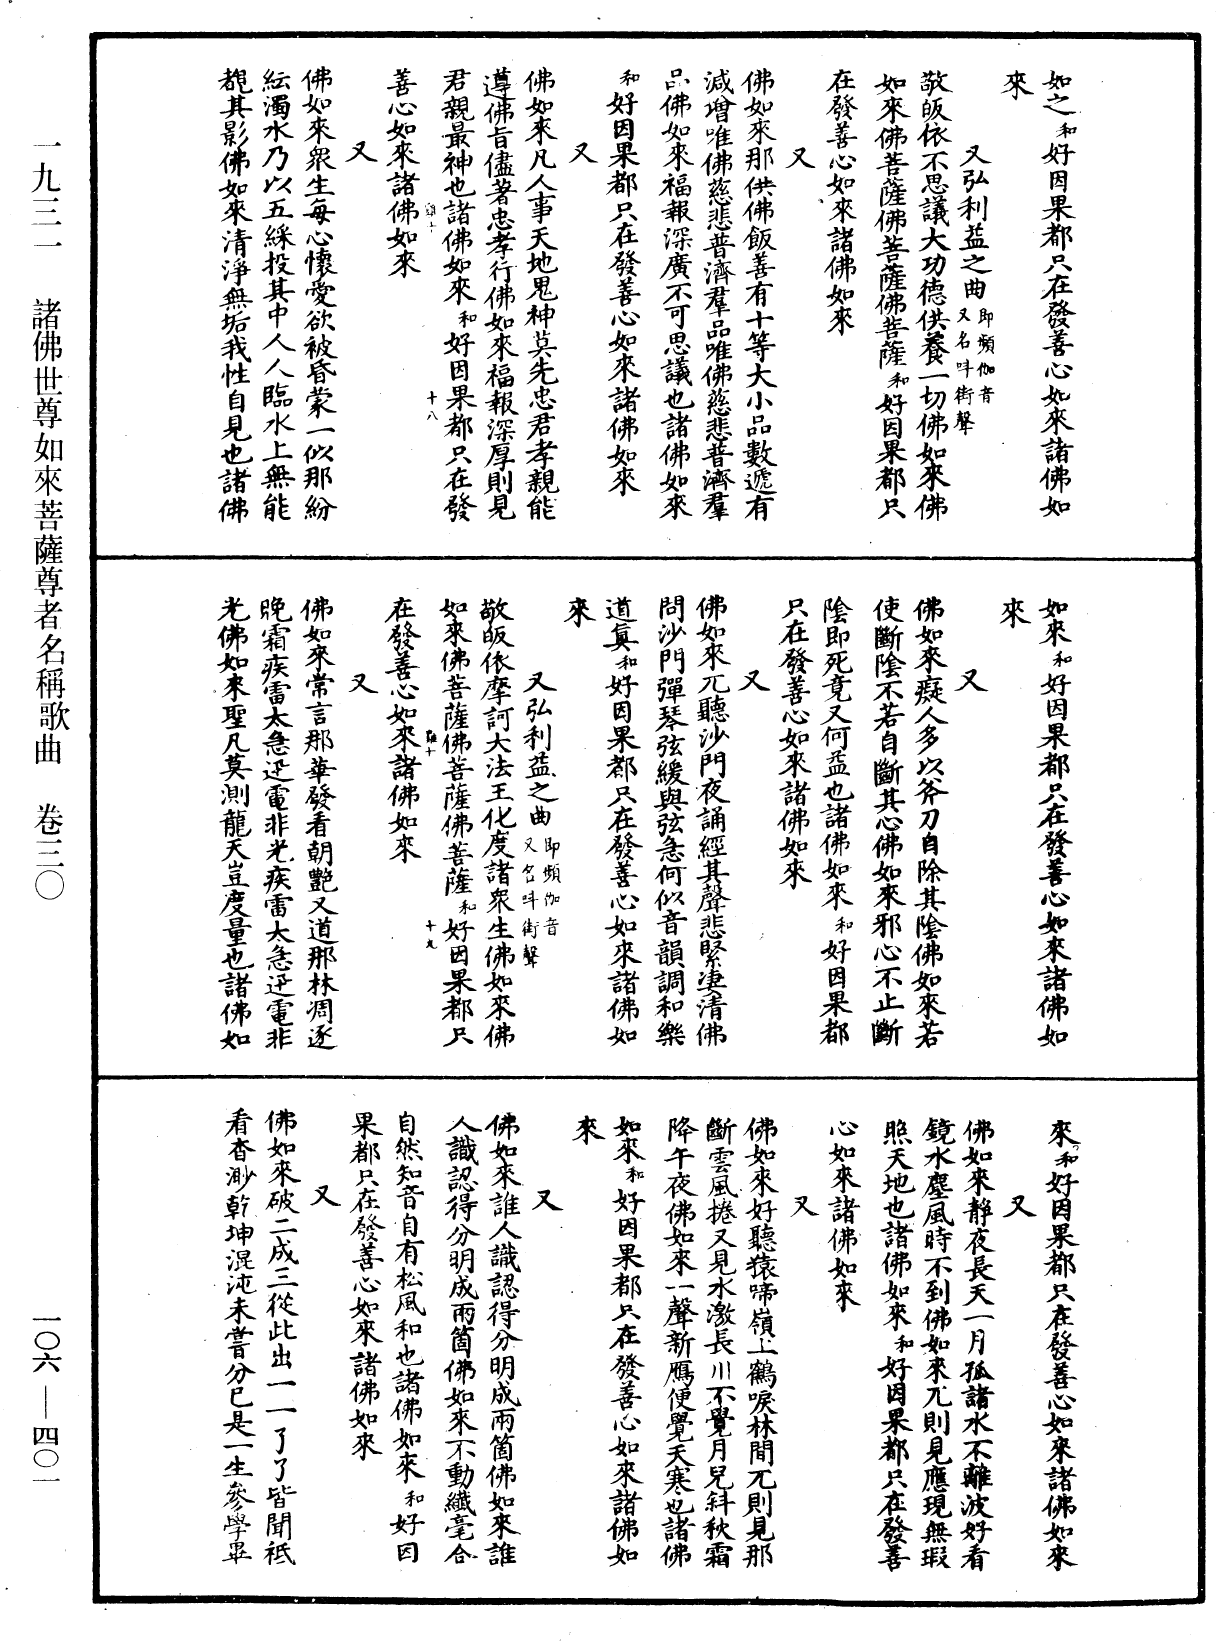 一九三一　諸佛世尊如來菩薩尊者名稱歌曲　卷三〇
一〇六—四〇一
如之和好因果都只在發善心如來諸佛如
來
又弘利益之曲即頻伽音又名叫街聲
敬皈依不思議大功德供養一切佛如來佛
如來佛菩薩佛菩薩佛菩薩和好因果都只
在發善心如來諸佛如來
又
佛如來那供佛飯善有十等大小品數遞有
減增唯佛慈悲普濟羣品唯佛慈悲普濟羣
品佛如來福報深廣不可思議也諸佛如來
和好因果都只在發善心如來諸佛如來
又
佛如來凡人事天地鬼神莫先忠君孝親能
遵佛旨儘著忠孝行佛如來福報深厚則見
君親最神也諸佛如來和好因果都只在發
十八
善心如來諸佛如來
又
佛如來衆生每心懷愛欲被昏蒙一似那紛
紜濁水乃以五綵投其中人人臨水上無能
覩其影佛如來清淨無垢我性自見也諸佛
如來和好因果都只在發善心如來諸佛如
來
又
佛如來癡人多以斧刀自除其陰佛如來若
使斷陰不若自斷其心佛如來邪心不止斷
陰即死竟又何益也諸佛如來和好因果都
只在發善心如來諸佛如來
又
佛如來兀聽沙門夜誦經其聲悲緊淒清佛
問沙門彈琴弦緩與弦急何似音韻調和樂
道眞和好因果都只在發善心如來諸佛如
來
又弘利益之曲即頻伽音又名叫街聲
敬皈依摩訶大法王化度諸衆生佛如來佛
如來佛菩薩佛菩薩佛菩薩和好因果都只
十九
在發善心如來諸佛如來
又
佛如來常言那華發看朝艷又道那林凋逐
晚霜疾雷太急迅電非光疾雷太急迅電非
光佛如來聖凡莫測龍天豈度量也諸佛如
來和好因果都只在發善心如來諸佛如來
又
佛如來靜夜長天一月孤諸水不離波好看
鏡水塵風時不到佛如來兀則見應現無瑕
照天地也諸佛如來和好因果都只在發善
心如來諸佛如來
又
佛如來好聽猿啼嶺上鶴唳林間兀則見那
斷雲風捲又見水激長川不覺月兒斜秋霜
降午夜佛如來一聲新鴈便覺天寒也諸佛
如來和好因果都只在發善心如來諸佛如
來
又
佛如來誰人識認得分明成兩箇佛如來誰
人識認得分明成兩箇佛如來不動纖毫合
自然知音自有松風和也諸佛如來和好因
果都只在發善心如來諸佛如來
又
佛如來破二成三從此出一一了了皆聞祗
看杳渺乾坤混沌未嘗分已是一生參學畢